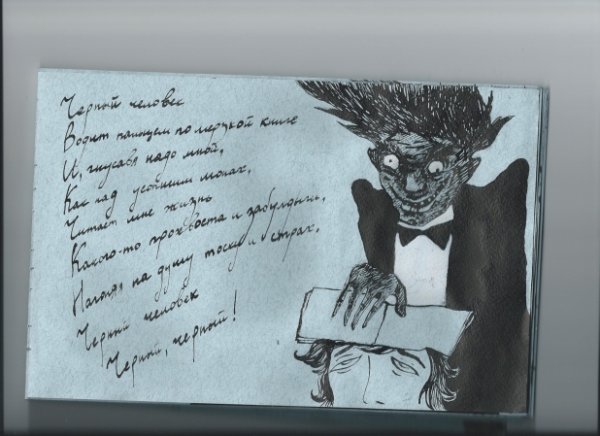 Черный человек
Водит пальцем по мерзкой книге
И, гнусавя надо мной,
Как над усопшим монах,
Читает мне жизнь
Какого-то прохвоста и забулдыги,
Нагоняя на душу тоску и страх.
Черный человек
Черный, черный!